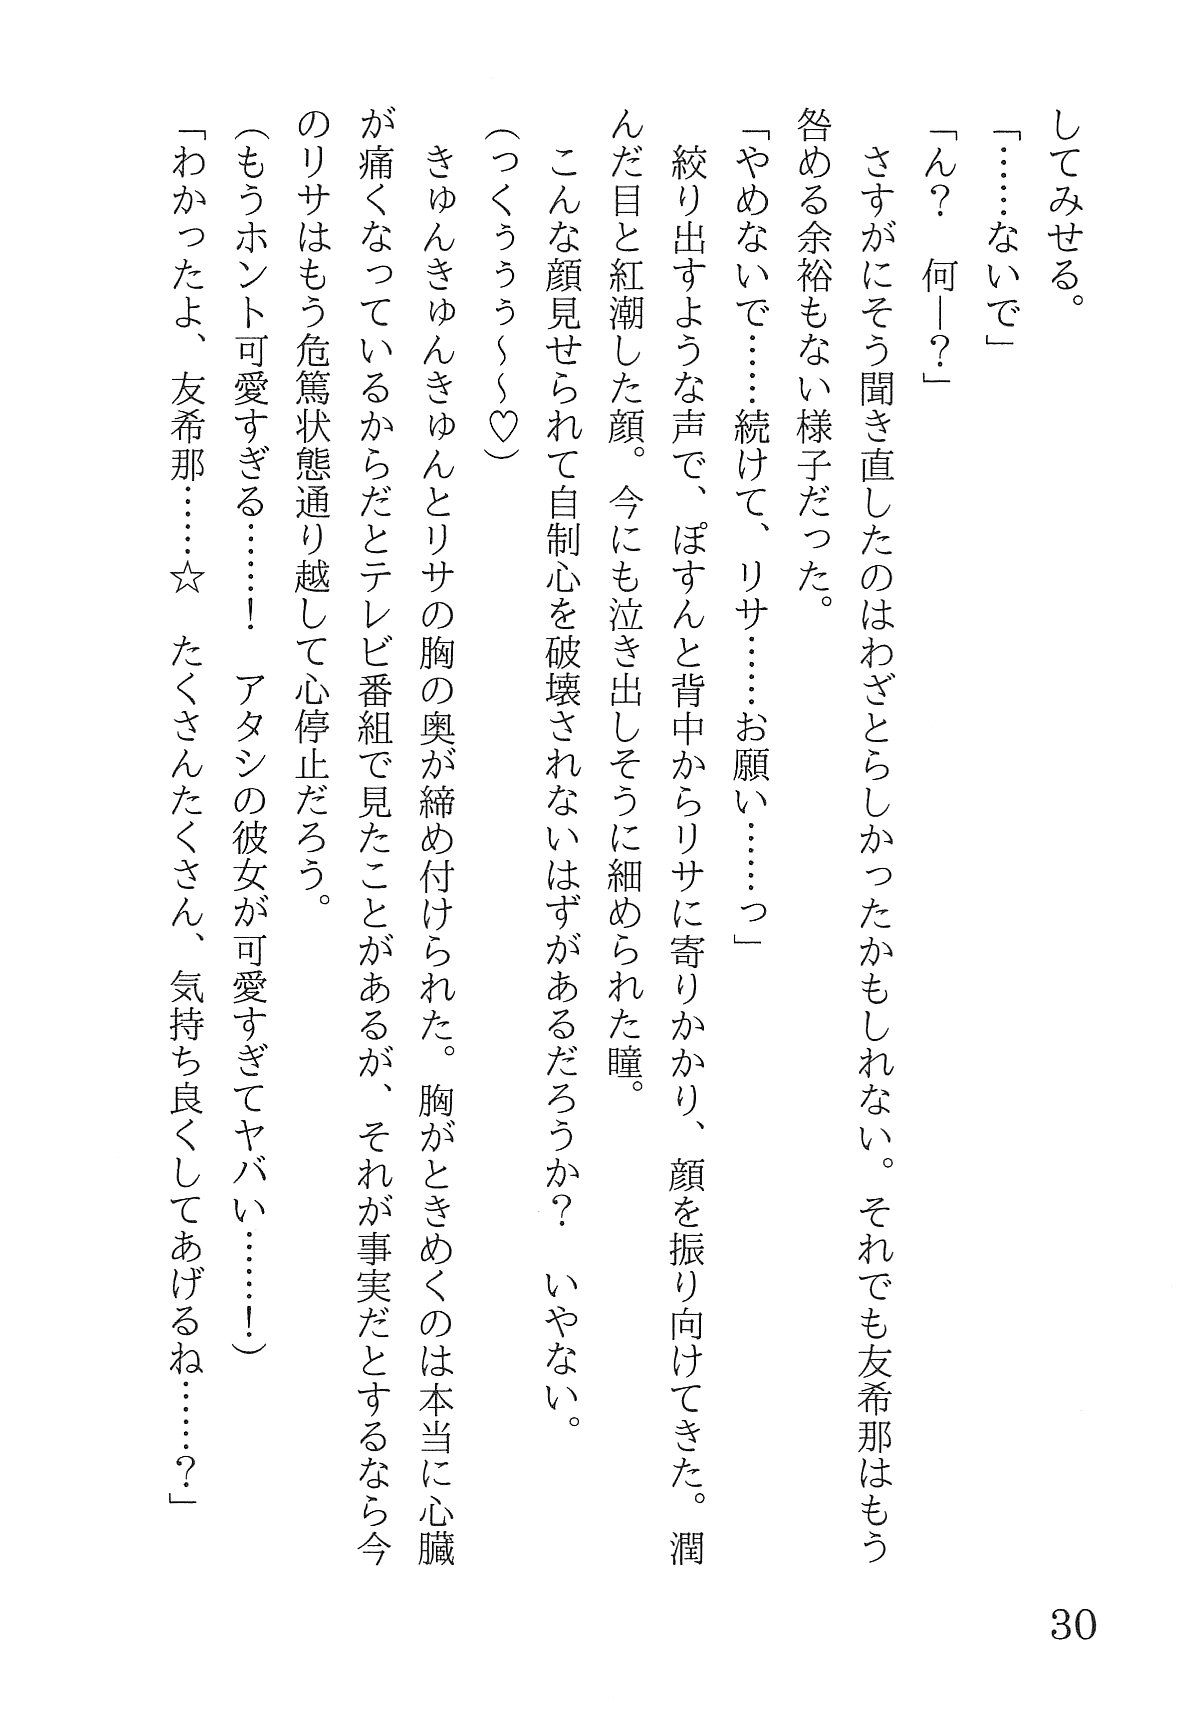 してみせる。
「……ないで」
「ん?　何―?」
　さすがにそう聞き直したのはわざとらしかったかもしれない。それでも友希那はもう
咎める余裕もない様子だった。
「やめないで……続けて、リサ……お願い……っ」
　絞り出すような声で、ぽすんと背中からリサに寄りかかり、顔を振り向けてきた。潤
んだ目と紅潮した顔。今にも泣き出しそうに細められた瞳。
　こんな顔見せられて自制心を破壊されないはずがあるだろうか?　いやない。
(っくぅぅぅ～～♡)
　きゅんきゅんきゅんとリサの胸の奥が締め付けられた。胸がときめくのは本当に心臓
が痛くなっているからだとテレビ番組で見たことがあるが、それが事実だとするなら今
のリサはもう危篤状態通り越して心停止だろう。
(もうホント可愛すぎる……!　アタシの彼女が可愛すぎてヤバい……!)
「わかったよ、友希那……☆　たくさんたくさん、気持ち良くしてあげるね……?」
30